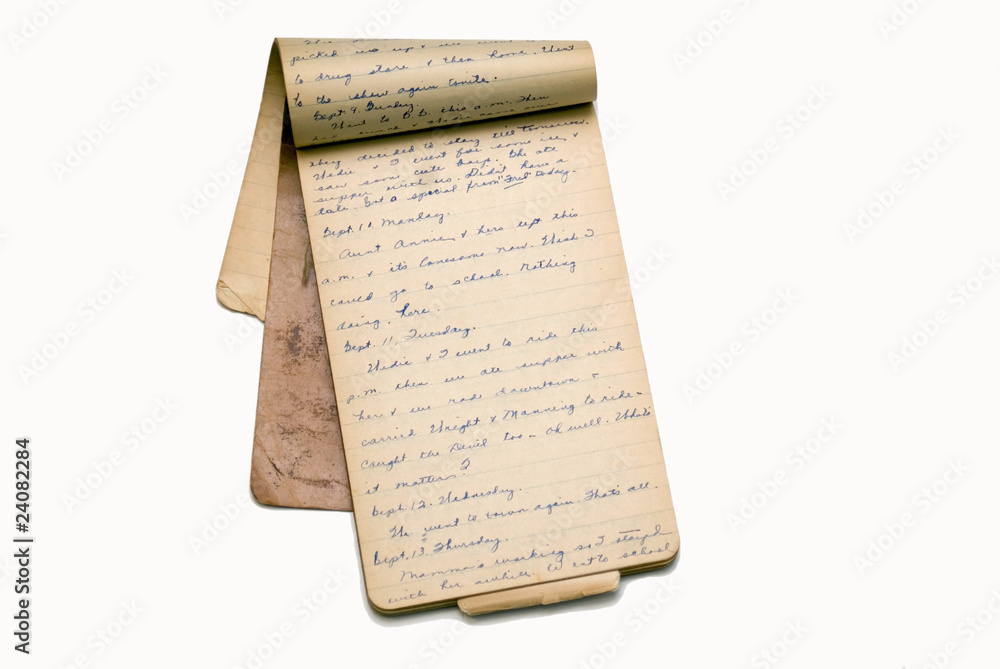 picked us up & we went
to drug store & then home. Went
to the show again tonite.
Sept. 9. Sunday.
Went to this a.m. Then
they decided to stay till tomorrow.
& I went for some ice &
saw some cute boys. She ate
supper with us. Didn't have a
date. Got a special from "Fred" today.
Sept. 10. Monday.
Aunt Annie & hers left this
a.m. & it's lonesome now. Wish I
could go to school. Nothing
doing here.
Sept. 11. Tuesday.
& I went to ride this
p.m. then we ate supper with
her & we rode downtown &
carried Wright & Manning to ride-
caught the Devil too - Oh well. What's
it matter?
Sept. 12. Wednesday.
We went to town again. That's all.
Sept. 13. Thursday.
Mamma's working so I stayed
with her awhile. to school
Adobe Stock | #24082284